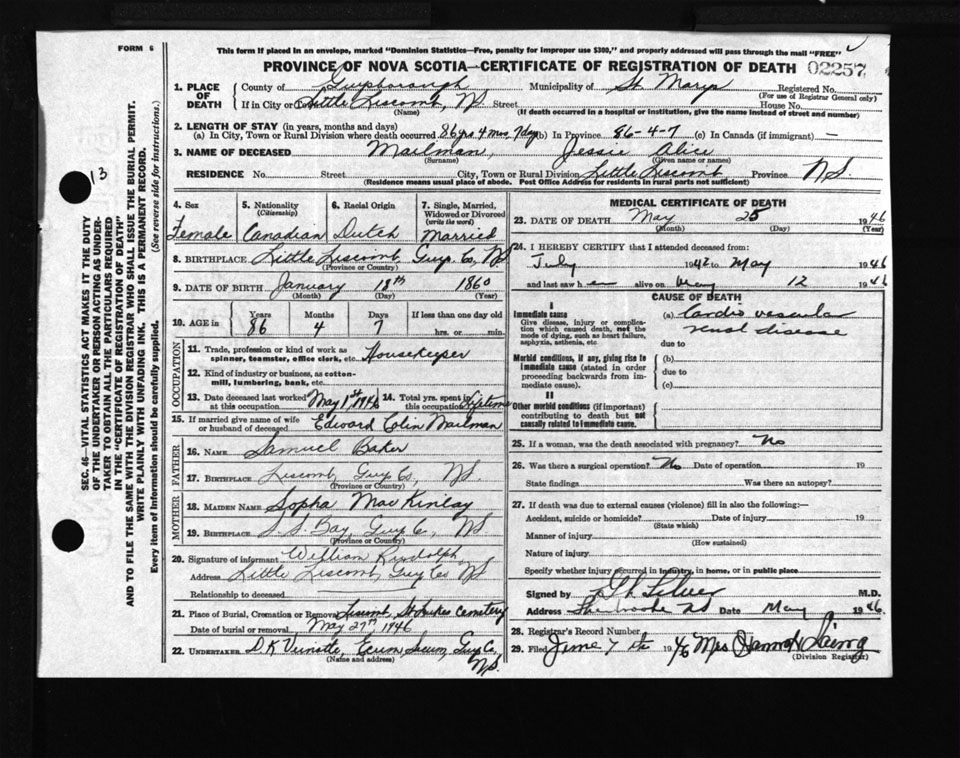 FORM 6
This form if placed in an envelope, marked "Dominion Statistics—Free, penalty for improper use $300," and properly addressed will pass through the mail "FREE"
PROVINCE OF NOVA SCOTIA—CERTIFICATE OF REGISTRATION OF DEATH 02257
13
SEC. 46—VITAL STATISTICS ACT MAKES IT THE DUTY
OF THE UNDERTAKER OR PERSON ACTING AS UNDER-
TAKER TO OBTAIN ALL THE PARTICULARS REQUIRED
IN THE "CERTIFICATE OF REGISTRATION OF DEATH"
AND TO FILE THE SAME WITH THE DIVISION REGISTRAR WHO SHALL ISSUE THE BURIAL PERMIT.
WRITE PLAINLY WITH UNFADING INK. THIS IS A PERMANENT RECORD.
Every item of Information should be carefully supplied. (See reverse side for instructions.)
1. PLACE OF DEATH County of Guysborough Municipality of St Marys Registered No.
(For use of Registrar General only)
If in City or Little Liscomb, NS Street House No.
(Name) (If death occurred in a hospital or institution, give the name instead of street and number)
2. LENGTH OF STAY (in years, months and days)
(a) In City, Town or Rural Division where death occurred 86 yrs 4 mos 7 day (b) In Province 86-4-7 (c) In Canada (if immigrant) —
3. NAME OF DECEASED Mailman, Jessie Alice
(Surname) (Given name or names)
RESIDENCE No. Street City, Town or Rural Division Little Liscomb Province NS.
(Residence means usual place of abode. Post Office Address for residents in rural parts not sufficient)
4. Sex 5. Nationality (Citizenship) 6. Racial Origin 7. Single, Married, Widowed or Divorced (write the word)
Female Canadian Dutch Married
8. BIRTHPLACE Little Liscomb, Guy. Co, NS
(Province or Country)
9. DATE OF BIRTH January 18th 1860
(Month) (Day) (Year)
10. AGE in Years Months Days If less than one day old
86 4 7 hrs. or min.
OCCUPATION
11. Trade, profession or kind of work as spinner, teamster, office clerk, etc. Housekeyser
12. Kind of industry or business, as cotton-mill, lumbering, bank, etc.
13. Date deceased last worked at this occupation May 1st 1946 14. Total yrs. spent in this occupation Lifetime
15. If married give name of wife or husband of deceased Edward Colin Mailman
FATHER
16. NAME Samuel Baker
17. BIRTHPLACE Liscomb, Guy Co, NS.
(Province or Country)
MOTHER
18. MAIDEN NAME Sopha MacKinlay
19. BIRTHPLACE Bay Guy Co., NS
(Province or Country)
20. Signature of informant William Rudolph
Address Little Liscomb, Guy Co NS
Relationship to deceased
21. Place of Burial, Cremation or Removal Liscomb, St Lukes Cemetery
Date of burial or removal May 27th 1946
22. UNDERTAKER D. K. Ecum Secum, Guy Co,
(Name and address) NS.
MEDICAL CERTIFICATE OF DEATH
23. DATE OF DEATH May 25 1946
(Month) (Day) (Year)
24. I HEREBY CERTIFY that I attended deceased from:
July 1942 to May 1946
and last saw her alive on May 12 1946
CAUSE OF DEATH
I
Immediate cause (a) Cardio vascular
Give disease, injury or complication which caused death, not the mode of dying, such as heart failure, asphyxia, asthenia, etc renal disease
due to
Morbid conditions, if any, giving rise to immediate cause (stated in order proceeding backwards from immediate cause). (b)
due to
(c)
II
Other morbid conditions (if important) contributing to death but not causally related to immediate cause.
25. If a woman, was the death associated with pregnancy? No
26. Was there a surgical operation? No Date of operation 19
State findings Was there an autopsy?
27. If death was due to external causes (violence) fill in also the following:—
Accident, suicide or homicide? Date of injury 19
(State which)
Manner of injury
(How sustained)
Nature of injury
Specify whether injury occurred in industry, in home, or in public place
Signed by Silver M.D.
Address Sherbrooke NS Date May 1946.
28. Registrar's Record Number
29. Filed June 7th 1946 Mrs Laing
(Division Registrar)